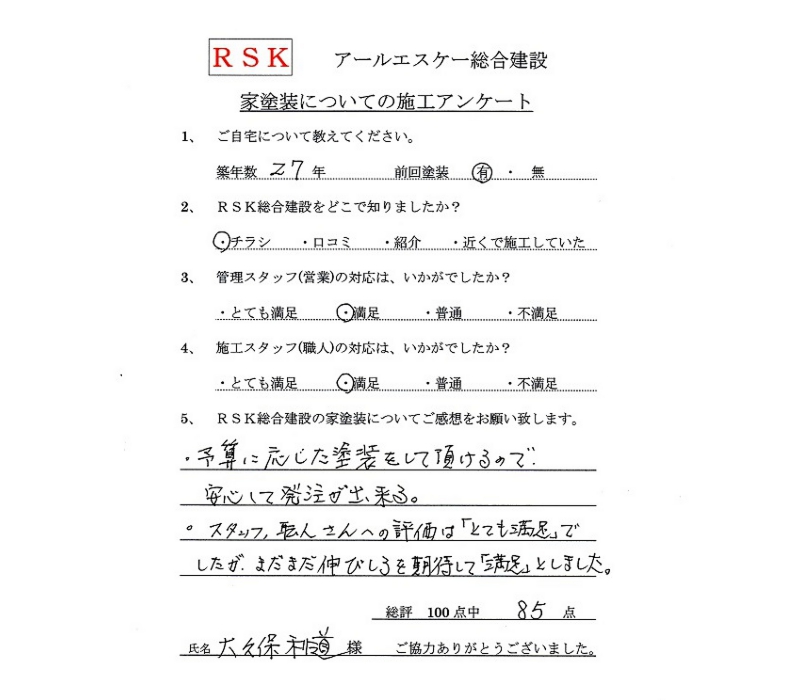 RSK アールエスケー総合建設
家塗装についての施工アンケート
1、 ご自宅について教えてください。
築年数 27 年 前回塗装 有 ・ 無
2、 RSK総合建設をどこで知りましたか？
・チラシ ・口コミ ・紹介 ・近くで施工していた
3、 管理スタッフ(営業)の対応は、いかがでしたか？
・とても満足 ・満足 ・普通 ・不満足
4、 施工スタッフ(職人)の対応は、いかがでしたか？
・とても満足 ・満足 ・普通 ・不満足
5、 RSK総合建設の家塗装についてご感想をお願い致します。
・予算に応じた塗装をして頂けるので
安心して発注が出来る。
。スタッフ,職人さんへの評価は「とても満足」で
したが、まだまだ伸びしろを期待して「満足」としました。
総評 100点中 85 点
氏名 大久保利道 様 ご協力ありがとうございました。